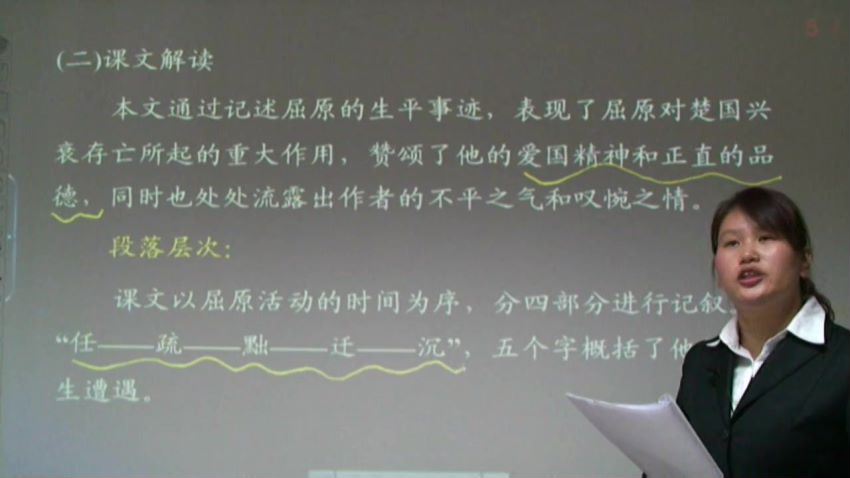 (二)课文解读
本文通过记述屈原的生平事迹，表现了屈原对楚国兴
衰存亡所起的重大作用，赞颂了他的爱国精神和正直的品
德，同时也处处流露出作者的不平之气和叹惋之情。
段落层次：
课文以屈原活动的时间为序，分四部分进行记叙
“任——疏——黜——迁——沉”，五个字概括了他
生遭遇。